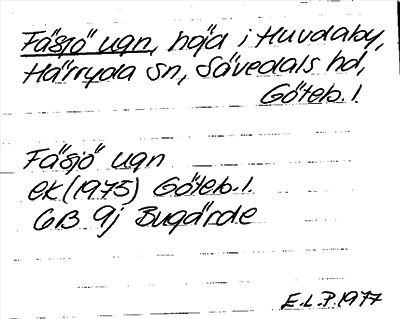 Fäsjö ugn, höjd i Huvdaby,
Härryda sn, Sävedals hd,
Göteb. l.
Fäsjö ugn
ek (1975) Göteb. l.
6B 9j Bugärde
E.L.P. 1977